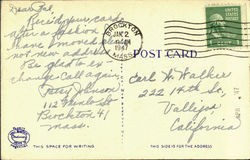 Dear Pal,
Received your card
after a fashion
I have moved also
not new address
Be glad to ex-
change Call again
Johnson
112
Brockton 41
Mass.
BROCKTON
JAN 2
1947
MASS.
POST CARD
Earl H. Walker
222 14th St,
Vallejo,
California
THIS SPACE FOR WRITING
THIS SPACE IS FOR ADDRESS